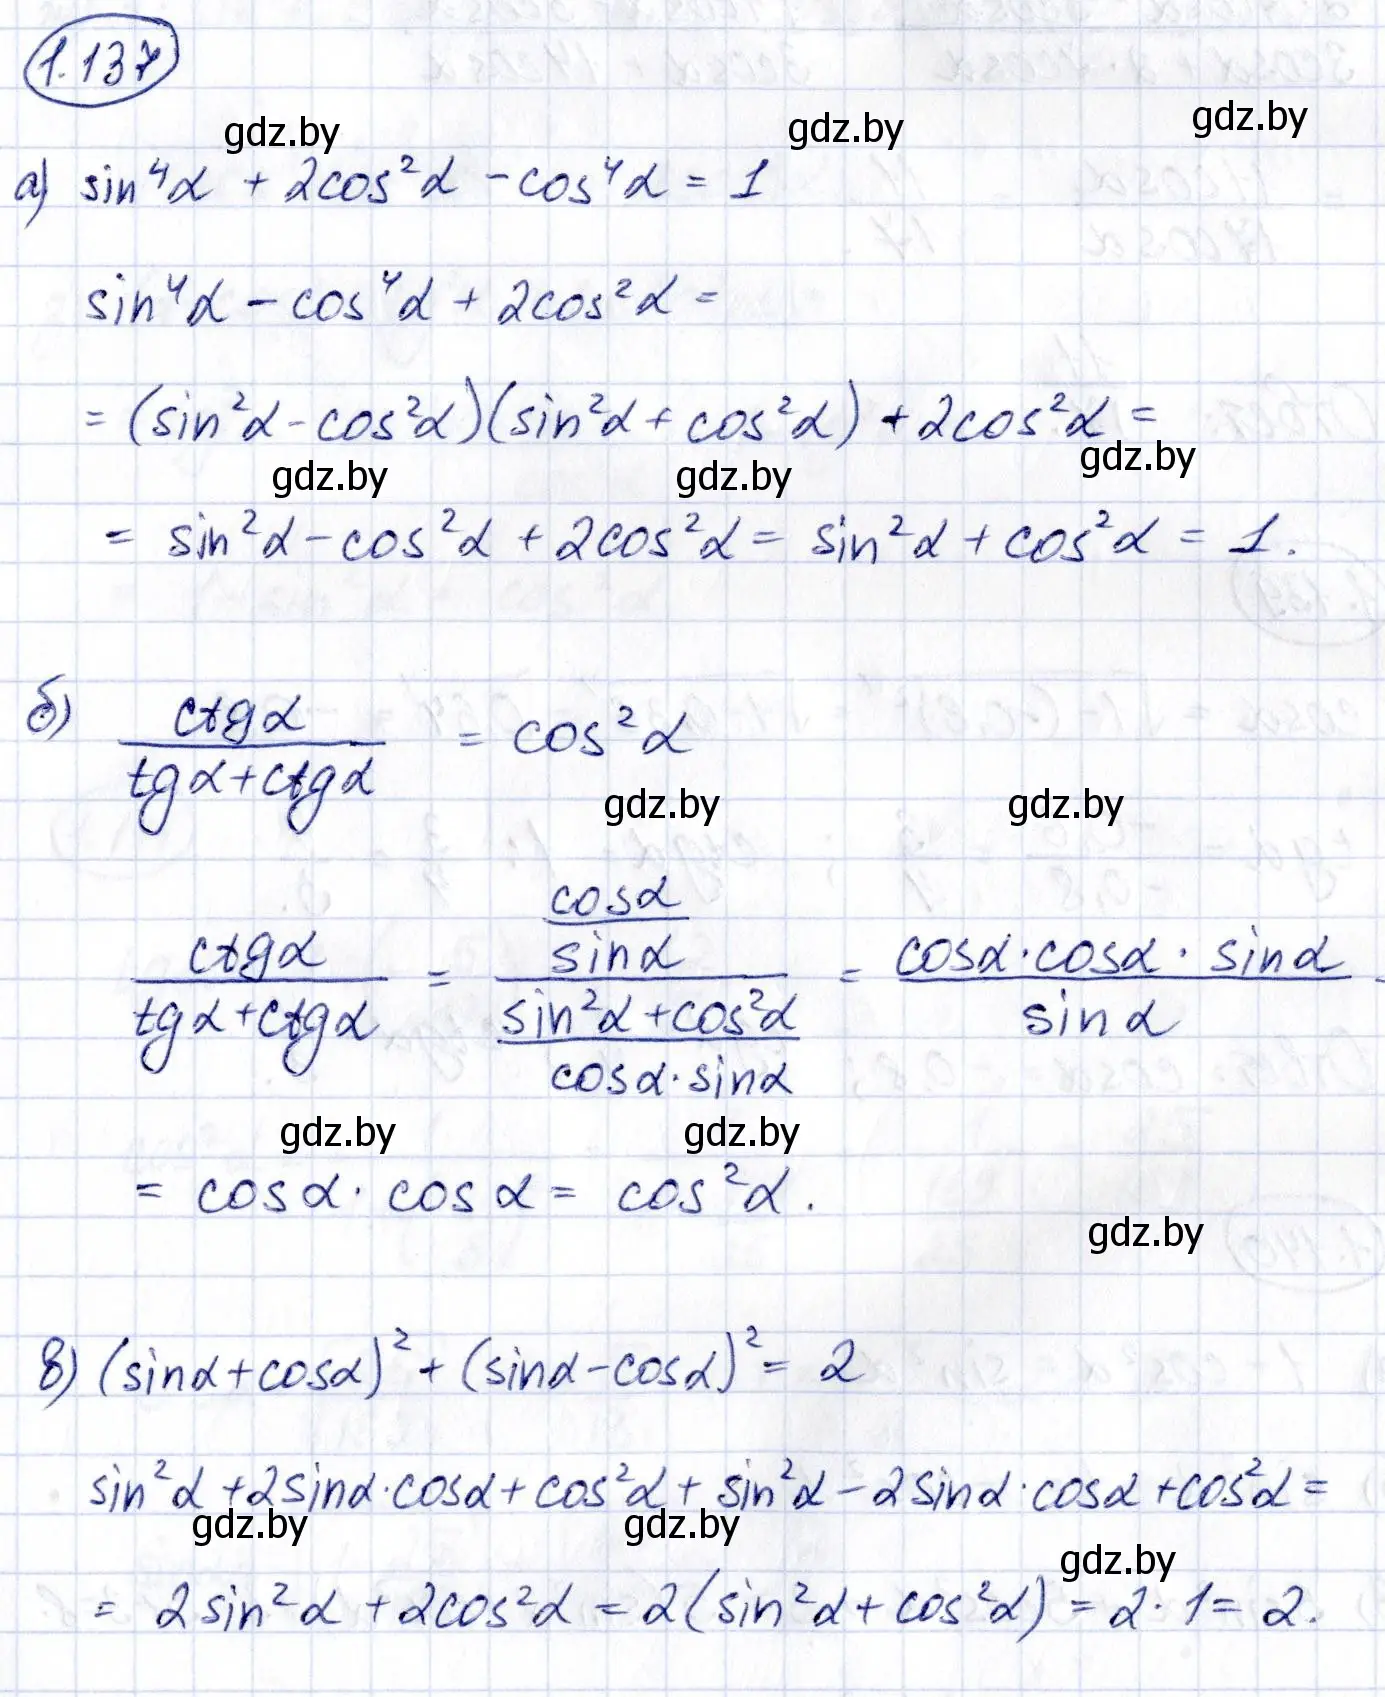 1.137
gdz.by gdz.by gdz.by
а) sin⁴α + 2cos²α - cos⁴α = 1
sin⁴α - cos⁴α + 2cos²α =
= (sin²α - cos²α)(sin²α + cos²α) + 2cos²α =
gdz.by gdz.by gdz.by
= sin²α - cos²α + 2cos²α = sin²α + cos²α = 1.
б) ctgα / (tgα + ctgα) = cos²α
gdz.by gdz.by
ctgα / (tgα + ctgα) = (cosα / sinα) / ((sin²α + cos²α) / (cosα · sinα)) = (cosα · cosα · sinα) / sinα =
gdz.by gdz.by
= cosα · cosα = cos²α.
gdz.by
в) (sinα + cosα)² + (sinα - cosα)² = 2
sin²α + 2sinα · cosα + cos²α + sin²α - 2sinα · cosα + cos²α =
gdz.by gdz.by gdz.by
= 2sin²α + 2cos²α = 2(sin²α + cos²α) = 2 · 1 = 2.